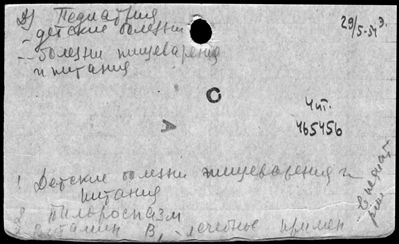 Педиатрия
- детские болезни
- болезни пищеварения
и питания
29/5-54 э.
Чит.
465456
О
А
1 Детские болезни пищеварения и
питания
2 Пилороспазм
3 Витамин B1 - лечебное примен